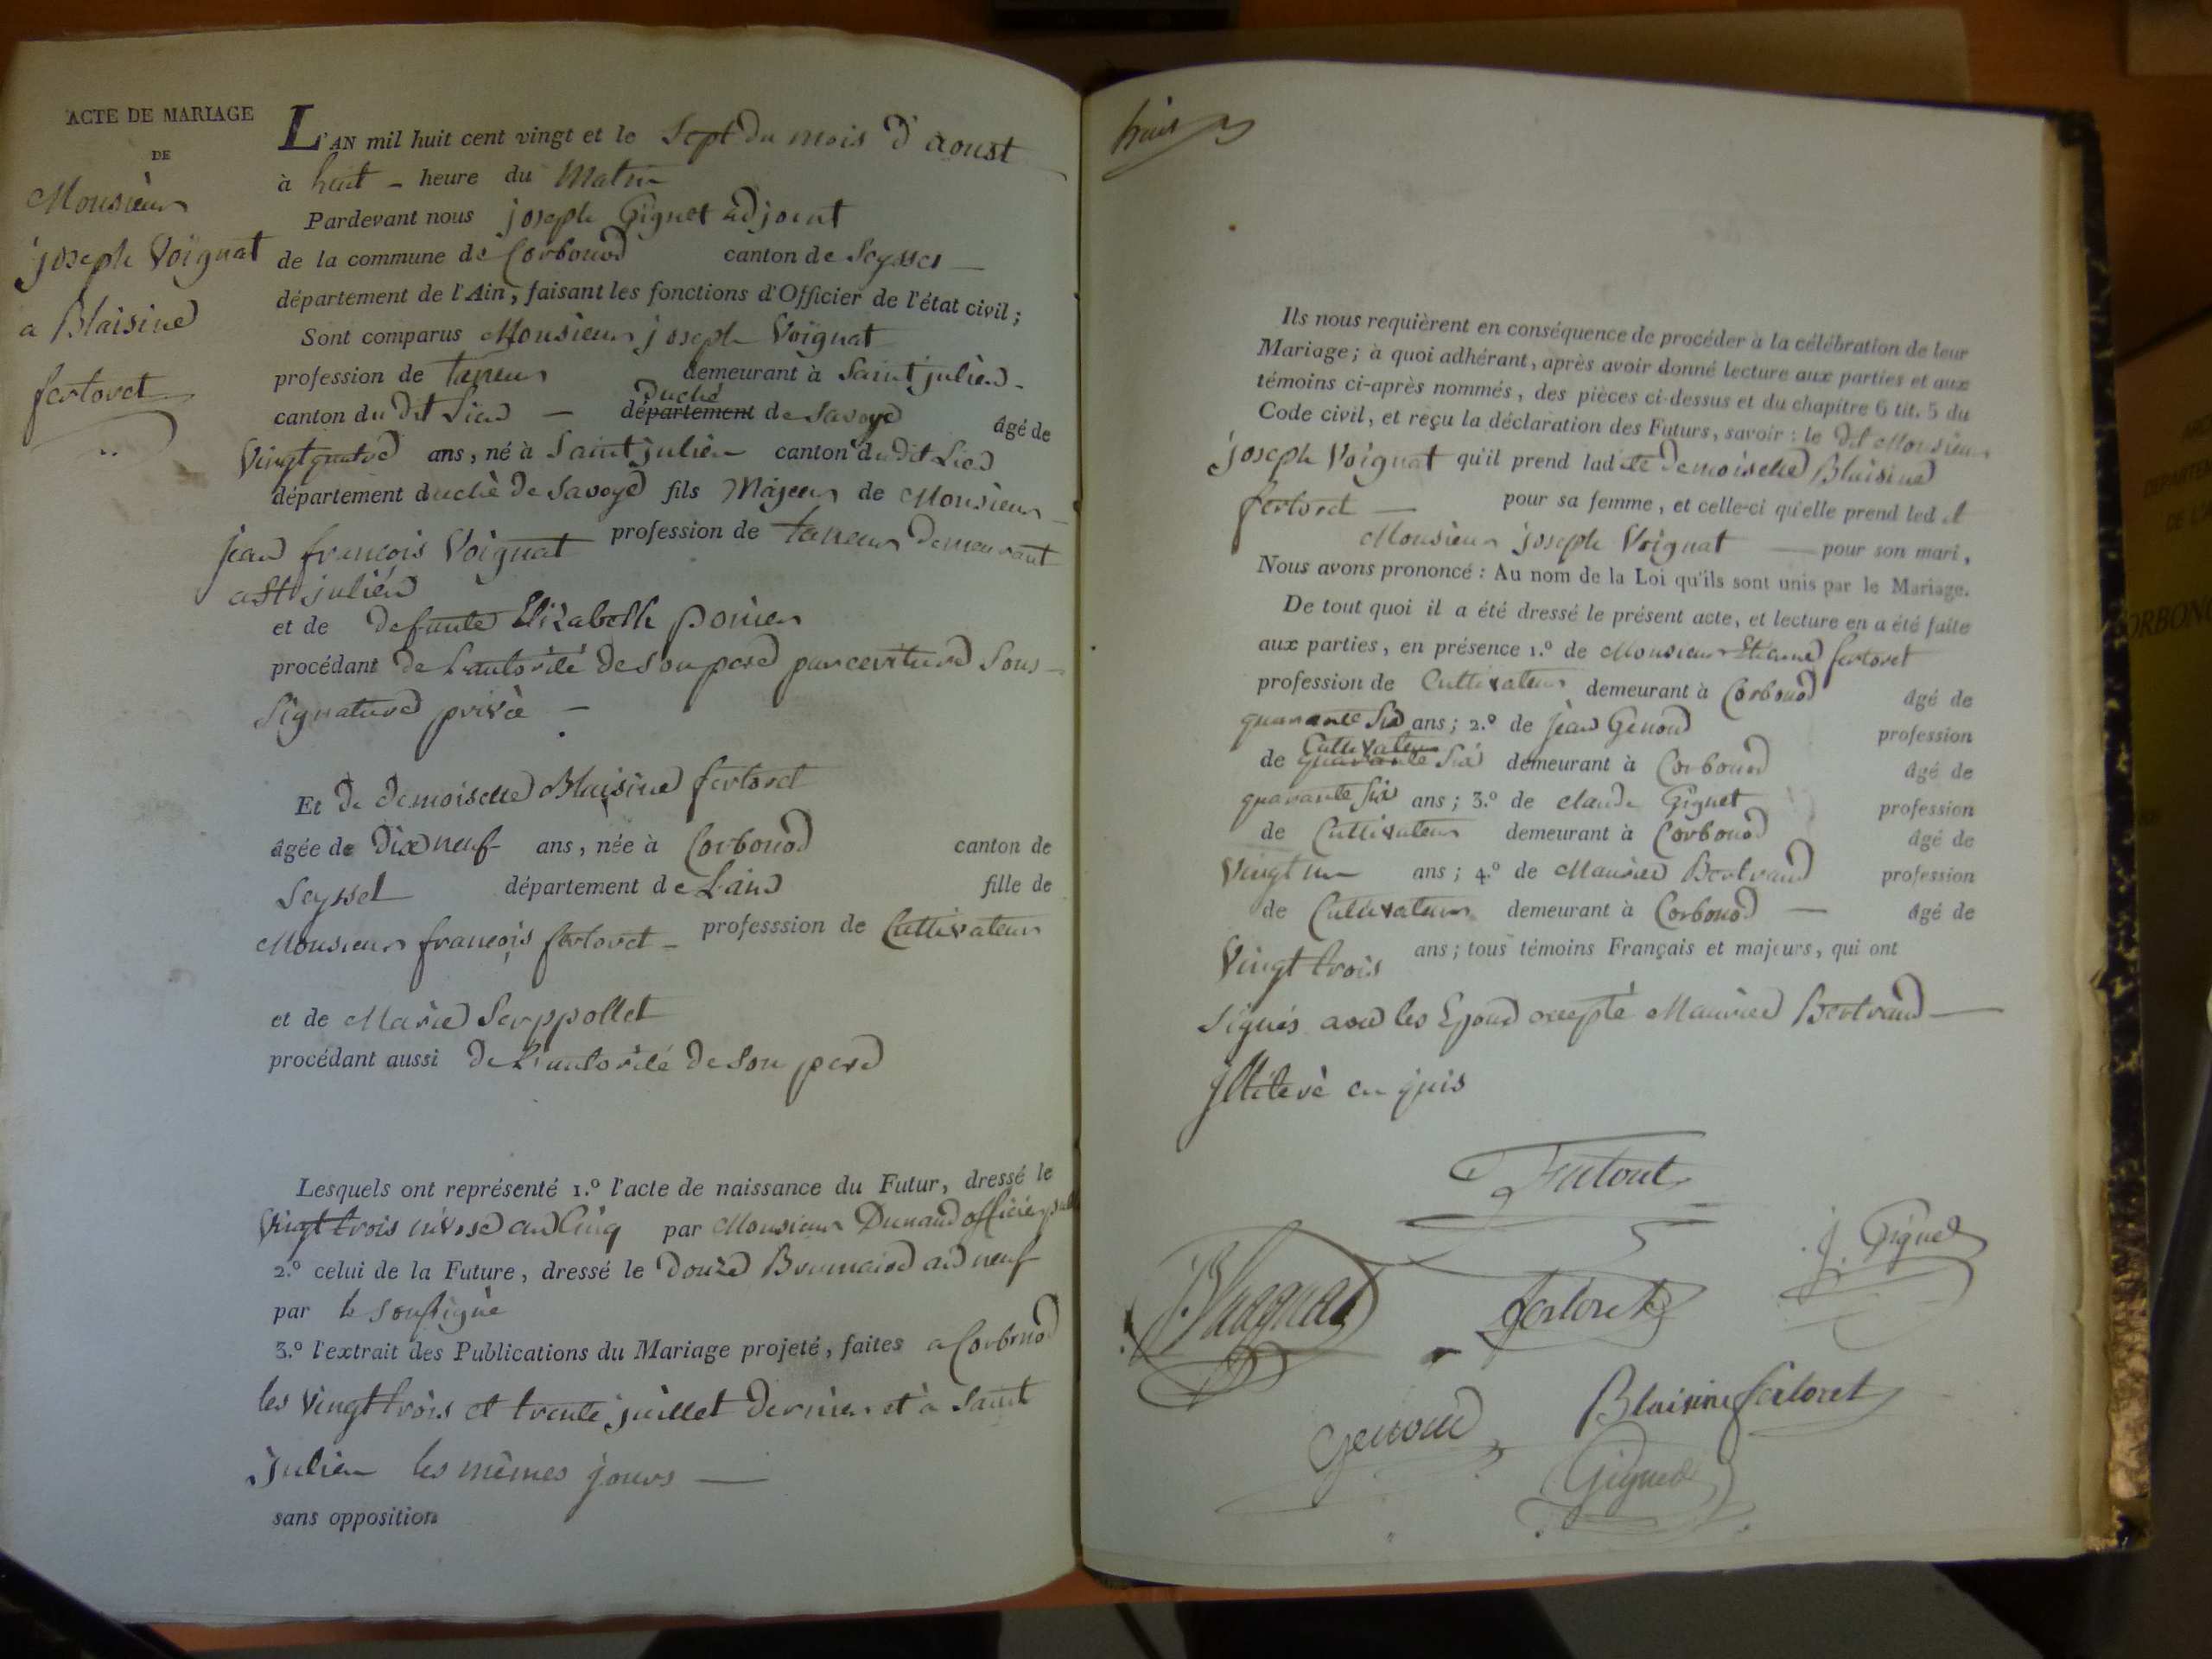 ACTE DE MARIAGE
DE
Monsieur
joseph Voignat
a Blaisine
fertoret
L'AN mil huit cent vingt et le Sept du mois d'aoust
à huit - heure du Matin
Pardevant nous joseph Gignet adjoint
de la commune de Corbonod canton de Seyssel
département de l'Ain, faisant les fonctions d'Officier de l'état civil;
Sont comparus Monsieur joseph Voignat
profession de taneur demeurant à Saint julien
canton du dit Lieu — département duché de Savoye âgé de
Vingt quatre ans, né à Saint julien canton du dit Lieu
département duché de Savoye fils Majeur de Monsieur
jean françois Voignat profession de taneur demeurant
a St julien
et de defunte Elizabeth
procédant de L'autorité de son pere par ecriture Sous
Signature privée —
Et de demoiselle Blaisine fertoret
âgée de Dix neuf ans, née à Corbonod canton de
Seyssel département de Lain fille de
Monsieur françois fertoret - professsion de Cultivateur
et de Marie Serppollet
procédant aussi de L'autorité de Son pere
Lesquels ont représenté 1.º l'acte de naissance du Futur, dressé le
Vingt trois nivose an Cinq par Monsieur Dunand officier
2.º celui de la Future, dressé le douze Brumaire an neuf
par le Soussigné
3.º l'extrait des Publications du Mariage projeté, faites a Corbonod
les Vingt trois et trente juillet dernier et à Saint
Julien les mêmes jours —
sans opposition
huit
Ils nous requièrent en conséquence de procéder à la célébration de leur
Mariage; à quoi adhérant, après avoir donné lecture aux parties et aux
témoins ci-après nommés, des pièces ci-dessus et du chapitre 6 tit. 5 du
Code civil, et reçu la déclaration des Futurs, savoir: le dit Monsieur
joseph Voignat qu'il prend ladite demoiselle Blaisine
fertoret — pour sa femme, et celle-ci qu'elle prend led it
Monsieur joseph Voignat — pour son mari,
Nous avons prononcé: Au nom de la Loi qu'ils sont unis par le Mariage.
De tout quoi il a été dressé le présent acte, et lecture en a été faite
aux parties, en présence 1.º de Monsieur Etienne fertoret
profession de Cultivateur demeurant à Corbonod âgé de
quarante Six ans; 2.º de jean Genoud profession
de Cultivateur quarante Six demeurant à Corbonod âgé de
quarante Six ans; 3.º de claude Gignet profession
de Cultivateur demeurant à Corbonod âgé de
Vingt un ans; 4.º de Maurice Bertrand profession
de Cultivateur demeurant à Corbonod — âgé de
Vingt trois ans; tous témoins Français et majeurs, qui ont
Signés avec les Epoux excepté Maurice Bertrand —
Illiteré en quis
J. Gignet
fertoret
Blaisine fertoret
Genoud
Gignet